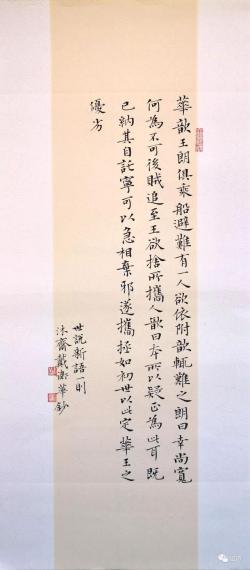 華歆王朗俱乘船避難有一人欲依附歆輒難之朗曰幸尚寬
何為不可後賊追至王欲捨所攜人歆曰本所以疑正為此耳既
已納其自託寧可以急相棄邪遂攜拯如初世以此定華王之
優劣
世說新語一則
沐齋戴
華鈔